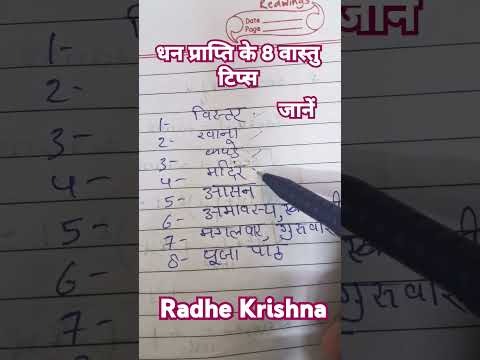 Redwings
Date
Page
जानें
धन प्राप्ति के 8 वास्तु
टिप्स
जानें
1- विस्तर
2- खाना
3- कपडे
4- मंदिर
5- आसन
6- अमावस्य,
7- मंगलवार, गुरुवार
8- पूजा पाठ
Radhe Krishna
1-
2-
3-
4-
5-
6-
7-
गुरुवा